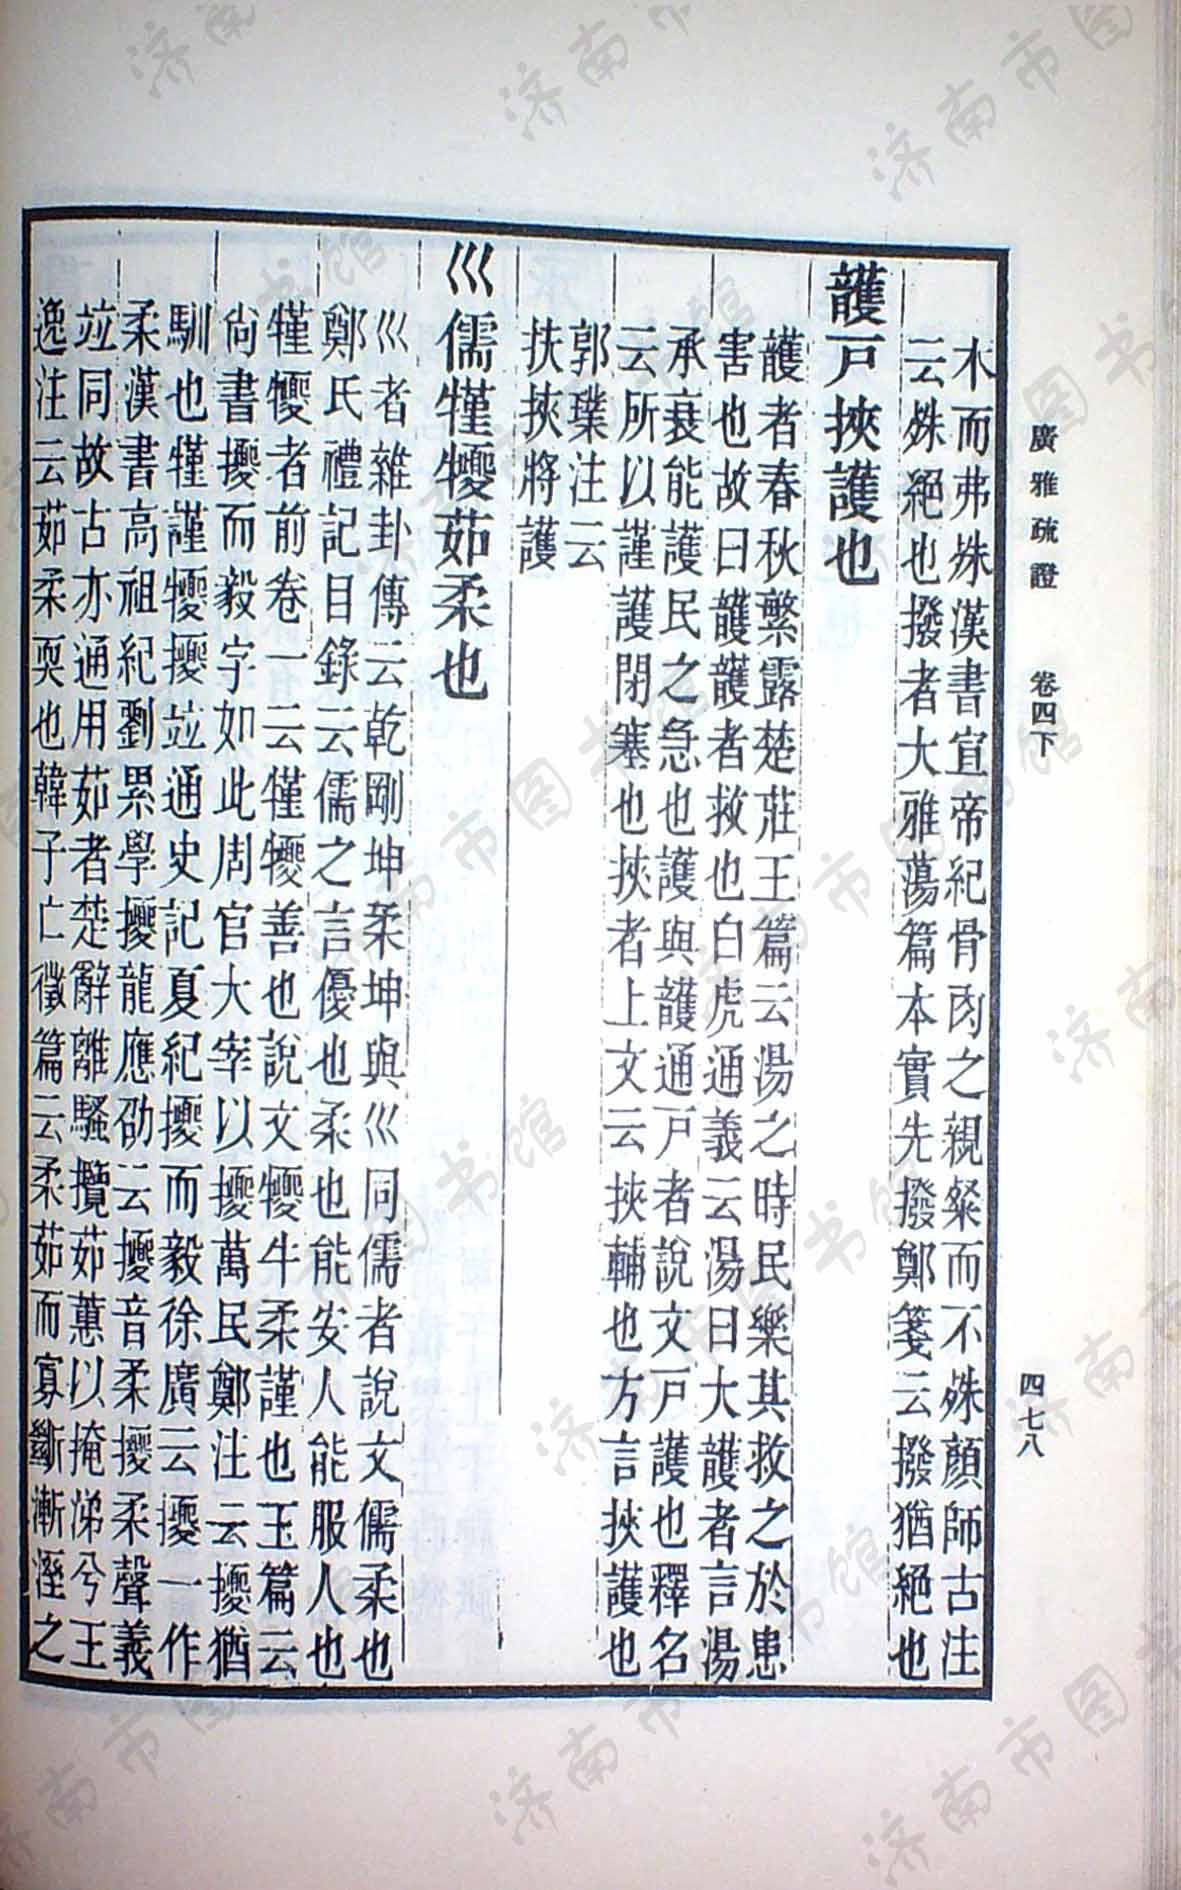 廣雅疏證　卷四下
四七八
木而弗殊漢書宣帝紀骨肉之親粲而不殊顏師古注
云殊絕也撥者大雅蕩篇本實先撥鄭箋云撥猶絕也
頀戸挾護也
頀者春秋繁露楚莊王篇云湯之時民樂其救之於患
害也故曰頀頀者救也白虎通義云湯曰大頀者言湯
承衰能護民之急也護與頀通戸者說文戸護也釋名
云所以謹護閉塞也挾者上文云挾輔也方言挾護也
郭璞注云
扶挾將護
巛儒㹌㹛茹柔也
巛者雜卦傳云乾剛坤柔坤與巛同儒者說文儒柔也
鄭氏禮記目錄云儒之言優也柔也能安人能服人也
㹌㹛者前卷一云㹌㹛善也說文㹛牛柔謹也玉篇云
尙書擾而毅字如此周官大宰以擾萬民鄭注云擾猶
馴也㹌謹㹛擾竝通史記夏紀擾而毅徐廣云擾一作
柔漢書高祖紀劉累學擾龍應劭云擾音柔擾柔聲義
竝同故古亦通用茹者楚辭離騷攬茹蕙以掩涕兮王
逸注云茹柔耎也韓子亡徵篇云柔茹而寡斷漸溼之
济南市图书馆